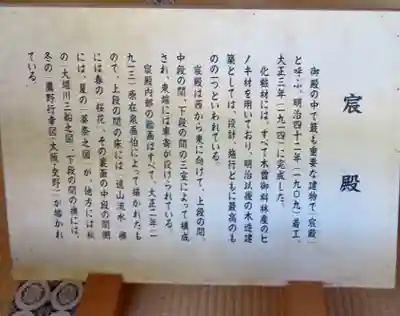 宸殿
御殿の中で最も重要な建物で「宸殿」
と呼ぶ。明治四十二年(一九〇九)着工、
大正三年(一九一四)に完成した。
化粧材には、すべて木曽御料林産のヒ
ノキ材を用いており、明治以後の木造建
築としては、設計、施行ともに最高のも
のの一つといわれている。
宸殿は西から東に向けて、上段の間、
中段の間、下段の間の三室によって構成
され、東端には車寄が設けられている。
宸殿内部の絵画はすべて、大正二年(一
九一三)原在泉画伯によって描かれたも
ので、上段の間の床には「遠山流水
には春の「桜花」、その裏面の中段の間側
には、夏の「
の「大堰川三船之図」、下段の間の襖には、
冬の「鷹野行幸図(大阪・交野)」が描かれ
ている。